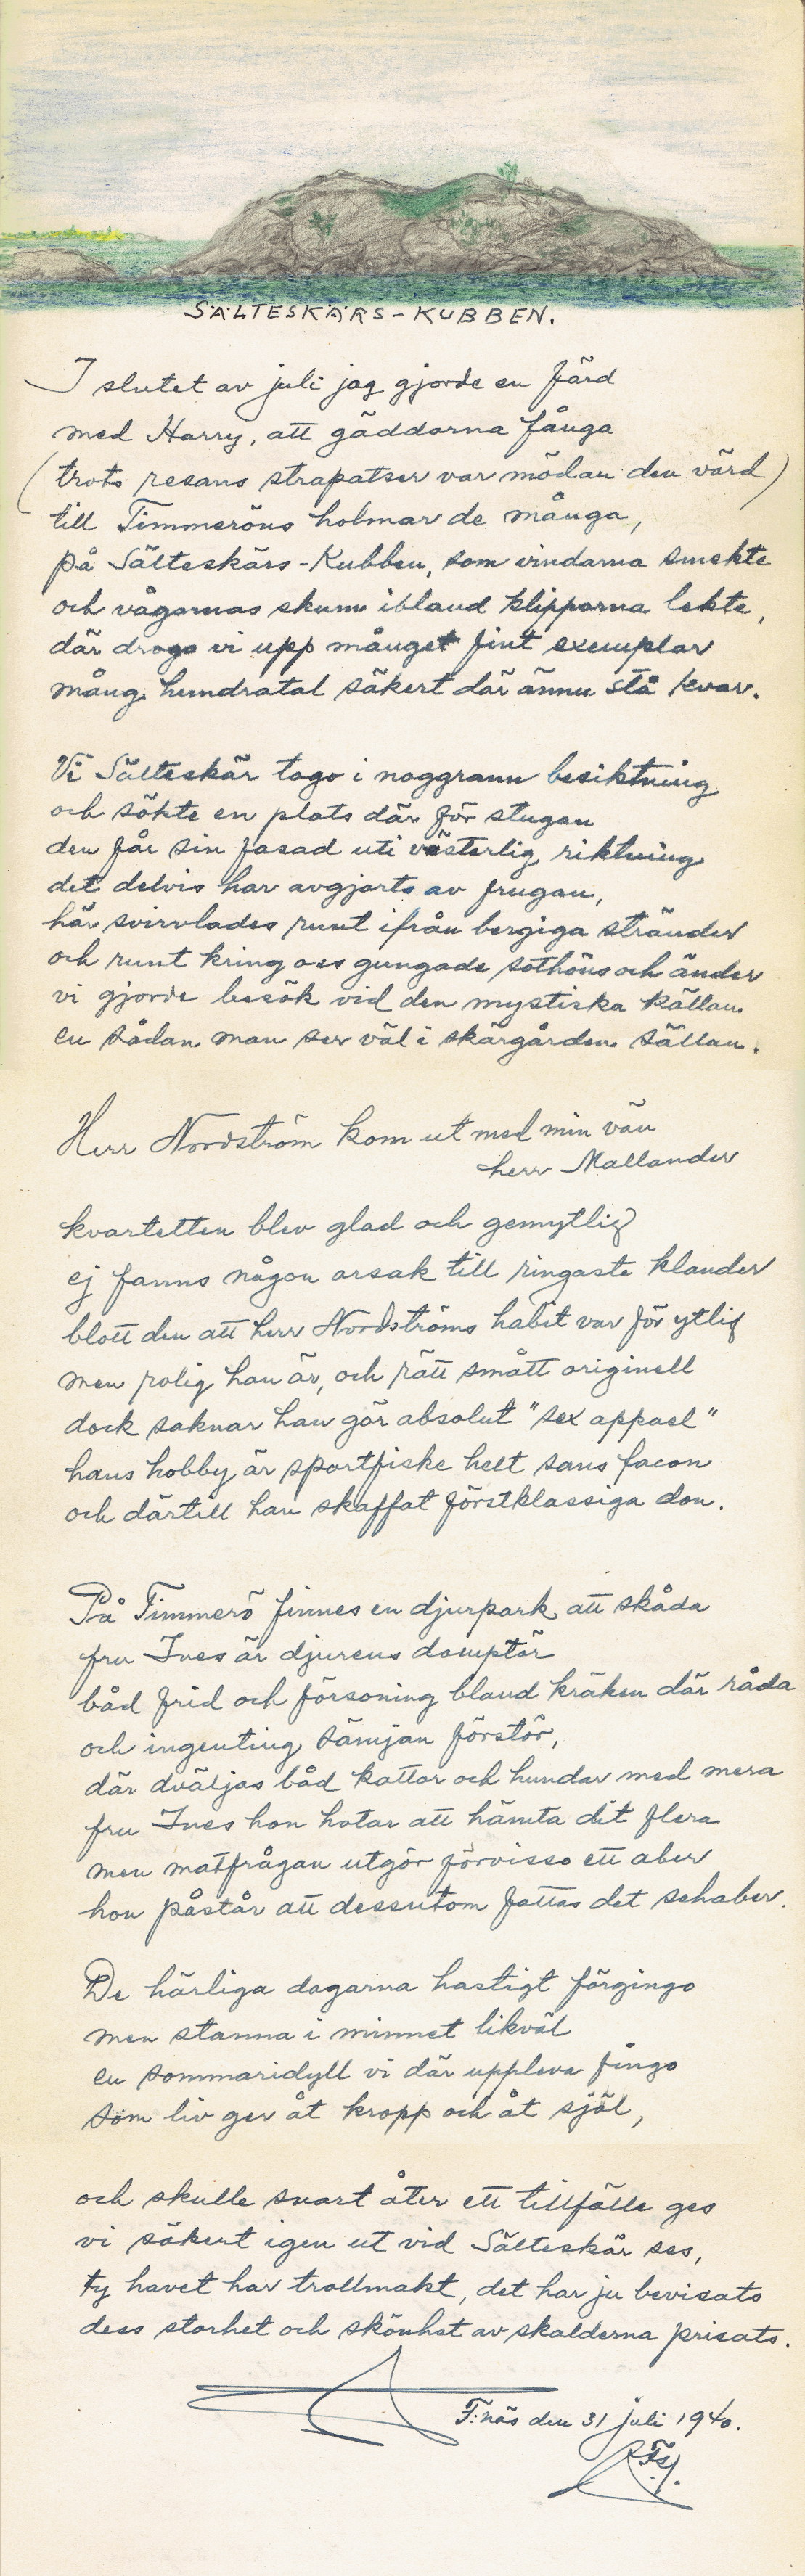 SÄLTESKÄRS-KUBBEN.
I slutet av juli jag gjorde en färd
med Harry, att gäddorna fånga
(trots resans strapatser var mödan den värd)
till Timmeröns holmar de många,
på Sälteskärs-Kubben, som vindarna smekte
och vågornas skum ibland klipporna lekte,
där drogo vi upp månget fint exemplar
mång hundratal säkert där ännu stå kvar.
Vi Sälteskär togo i noggrann besiktning
och sökte en plats där för stugan
den får sin fasad uti västerlig riktning
det delvis har avgjorts av frugan,
här svirvlades runt ifrån bergiga stränder
och runt kring oss gungade sothöns och änder
vi gjorde besök vid den mystiska källan
en sådan man ser väl i skärgården sällan.
Herr Nordström kom ut med min vän
herr Mallander
kvartetten blev glad och gemytlig
ej fanns någon orsak till ringaste klander
blott den att herr Nordströms habit var för ytlig
men rolig han är, och rätt smått originell
dock saknar han gör absolut "sex appael"
hans hobby är sportfiske helt sans facon
och därtill han skaffat förstklassiga don.
På Timmerö finnes en djurpark att skåda
fru Ines är djurens domptör
båd frid och försoning bland kräken där råda
och ingenting sämjan förstör,
där dväljas båd kattor och hundar med mera
fru Ines hon hotar att hämta dit flera
men matfrågan utgör förvisso ett aber
hon påstår att dessutom fattas det schaber.
De härliga dagarna hastigt förgingo
men stanna i minnet likväl
en sommaridyll vi där uppleva fingo
som liv ger åt kropp och åt själ,
och skulle snart åter ett tillfälle ges
vi säkert igen ut vid Sälteskär ses,
ty havet har trollmakt, det har ju bevisats
dess storhet och skönhet av skalderna prisats.
F:näs den 31 juli 1940.